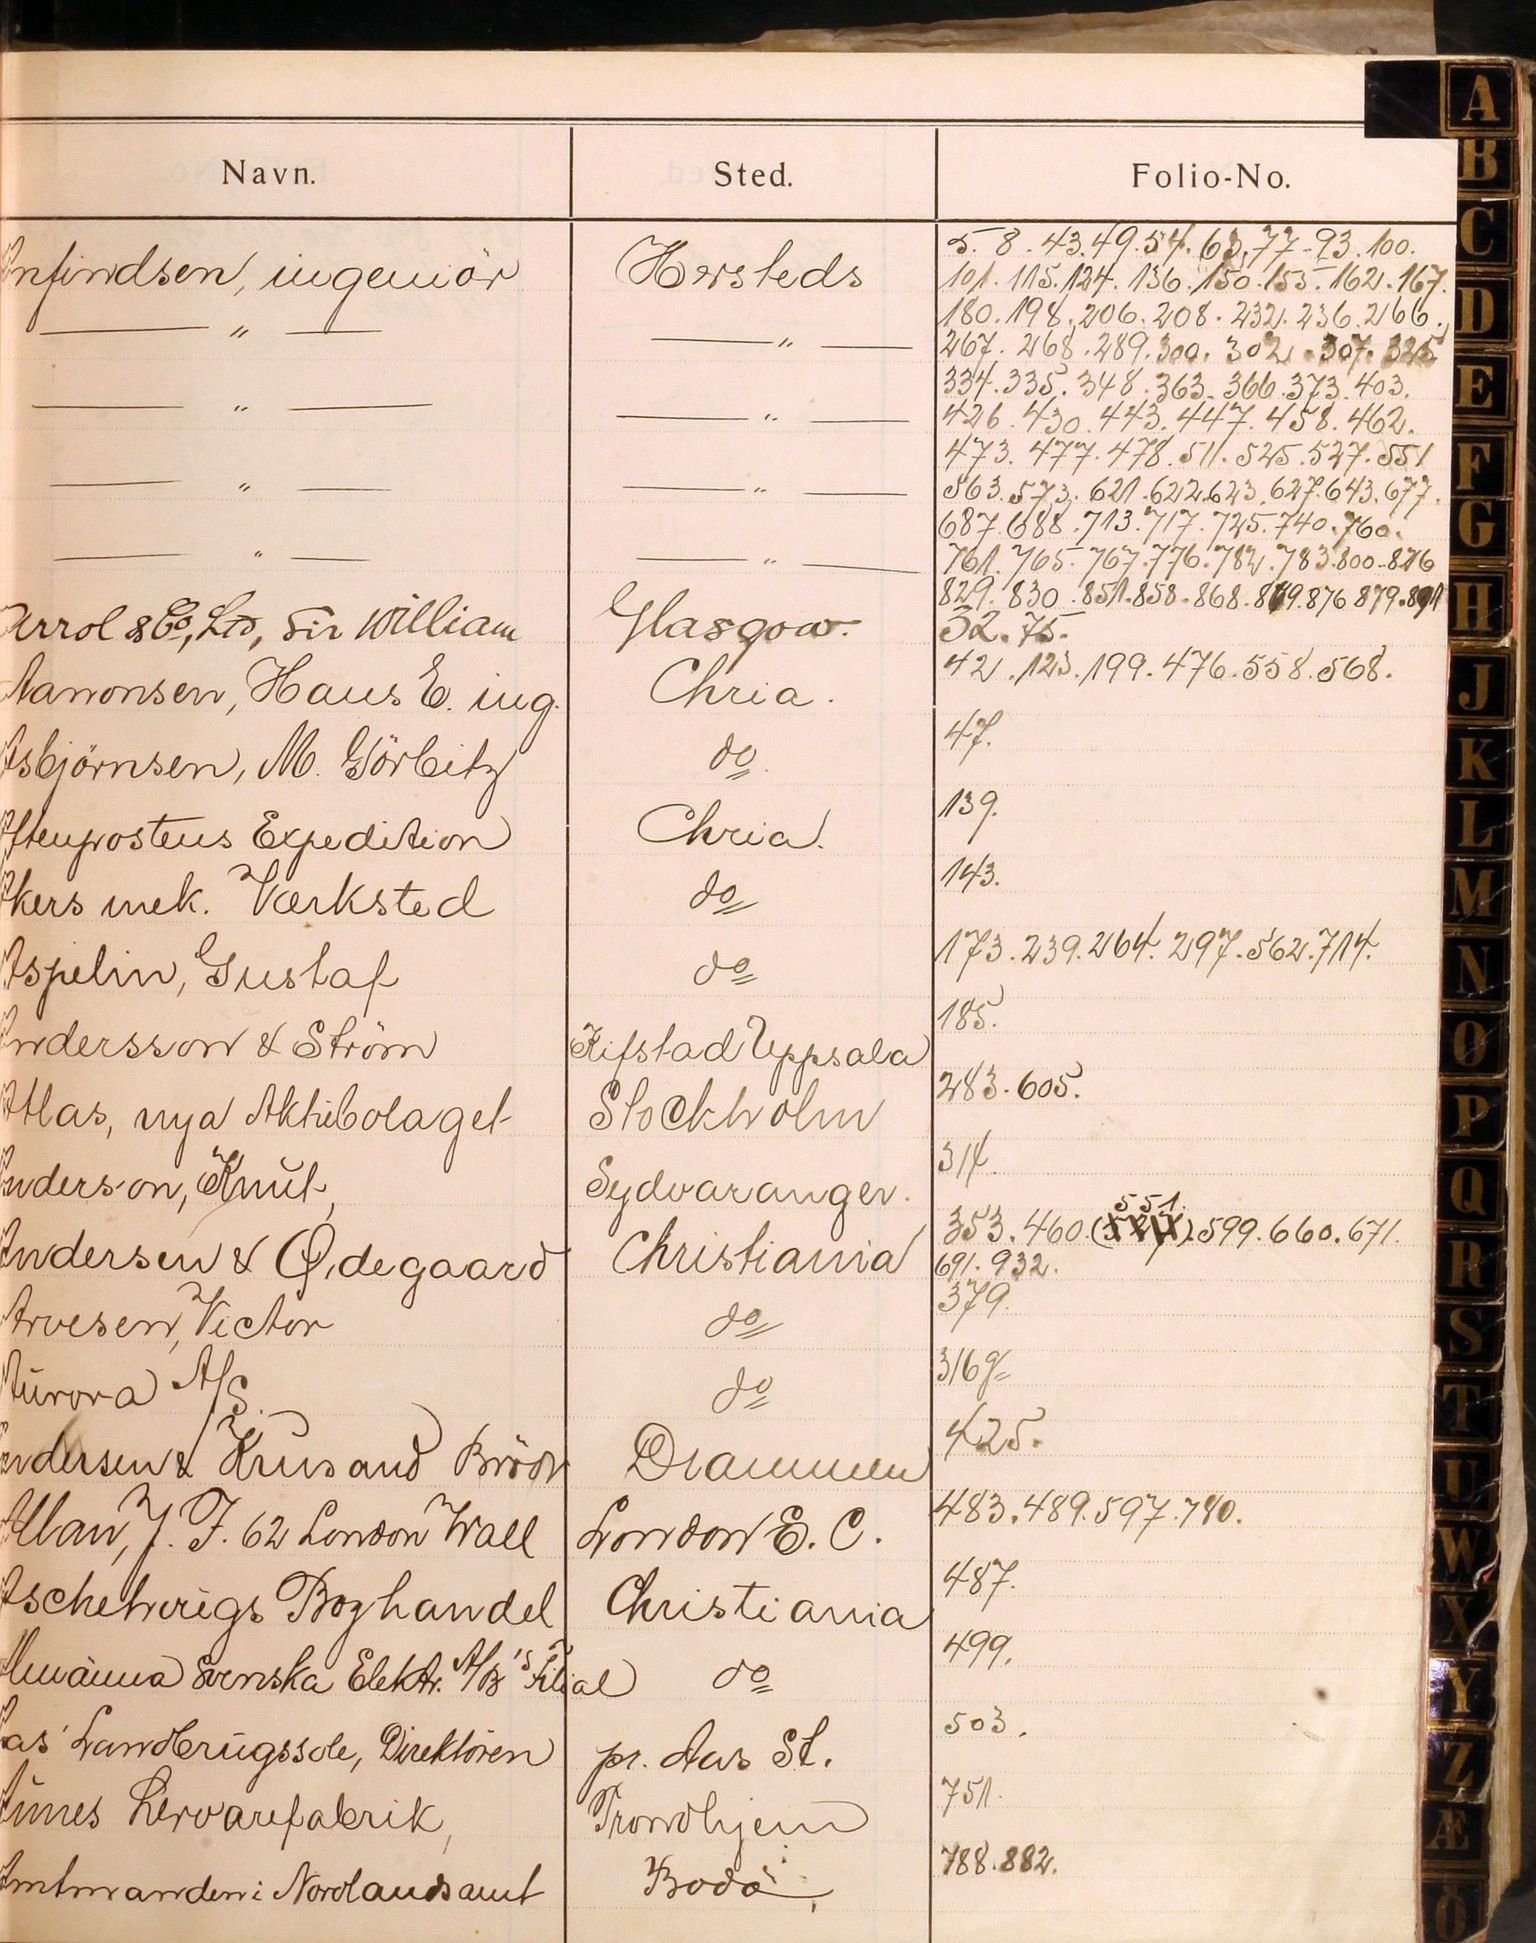 Navn. Sted. Folio-No.
Arnfindsen, ingeniör Hersteds 5. 8. 43. 49. 54. 63. 77. 93. 100.
101. 115. 124. 136. 150. 155. 162. 167.
— " — — " — 180. 198. 206. 208. 232. 236. 266.
267. 268. 289. 300. 302. 307. 325
334. 335. 348. 363. 366. 373. 403.
— " — — " — 426. 430. 443. 447. 458. 462.
473. 477. 478. 511. 525. 527. 551
— " — — " — 563. 573. 621. 622. 623. 627. 643. 677.
687. 688. 713. 717. 725. 740. 760.
— " — — " — 761. 765. 767. 776. 782. 783. 800. 826
829. 830. 851. 858. 868. 869. 876 879. 891
Arrol & Co, Ltd, Sir William Glasgow. 32. 75.
Aanonsen, Hans E. ing. Chria. 42. 123. 199. 476. 558. 568.
Asbjörnsen, M. Görbitz do 47.
Aftenpostens Expedition Chria. 139.
Akers mek. Værksted do 143.
Aspelin, Gustaf do 173. 239. 264. 297. 562. 714.
Andersson & Ström Uppsala 185.
Atlas, nya Aktiebolaget Stockholm 283. 605.
Anderson, Knut, Sydvaranger. 314.
551.
Andersen & Ødegaard Christiania 353. 460. ( ). 599. 660. 671.
691. 932.
Arvesen, Victor do 379.
Aurora A/S. do 316
Andersen & Krusand Brödr Drammen 425.
Allan, J. F. 62 London Wall London E. C. 483. 489. 597. 780.
Aschehougs Boghandel Christiania 487.
Almänna Svenska Elektr. A/B's Filial do 499.
Aas' Landbrugsscole, Direktören pr. Aas St. 503.
Aunes Lervarefabrik, Trondhjem 751.
Amtmanden i Nordlands amt Bodö, 788. 882.
A
B
C
D
E
F
G
H
J
K
L
M
N
O
P
Q
R
S
T
U
W
X
Y
Z
Æ
Ö